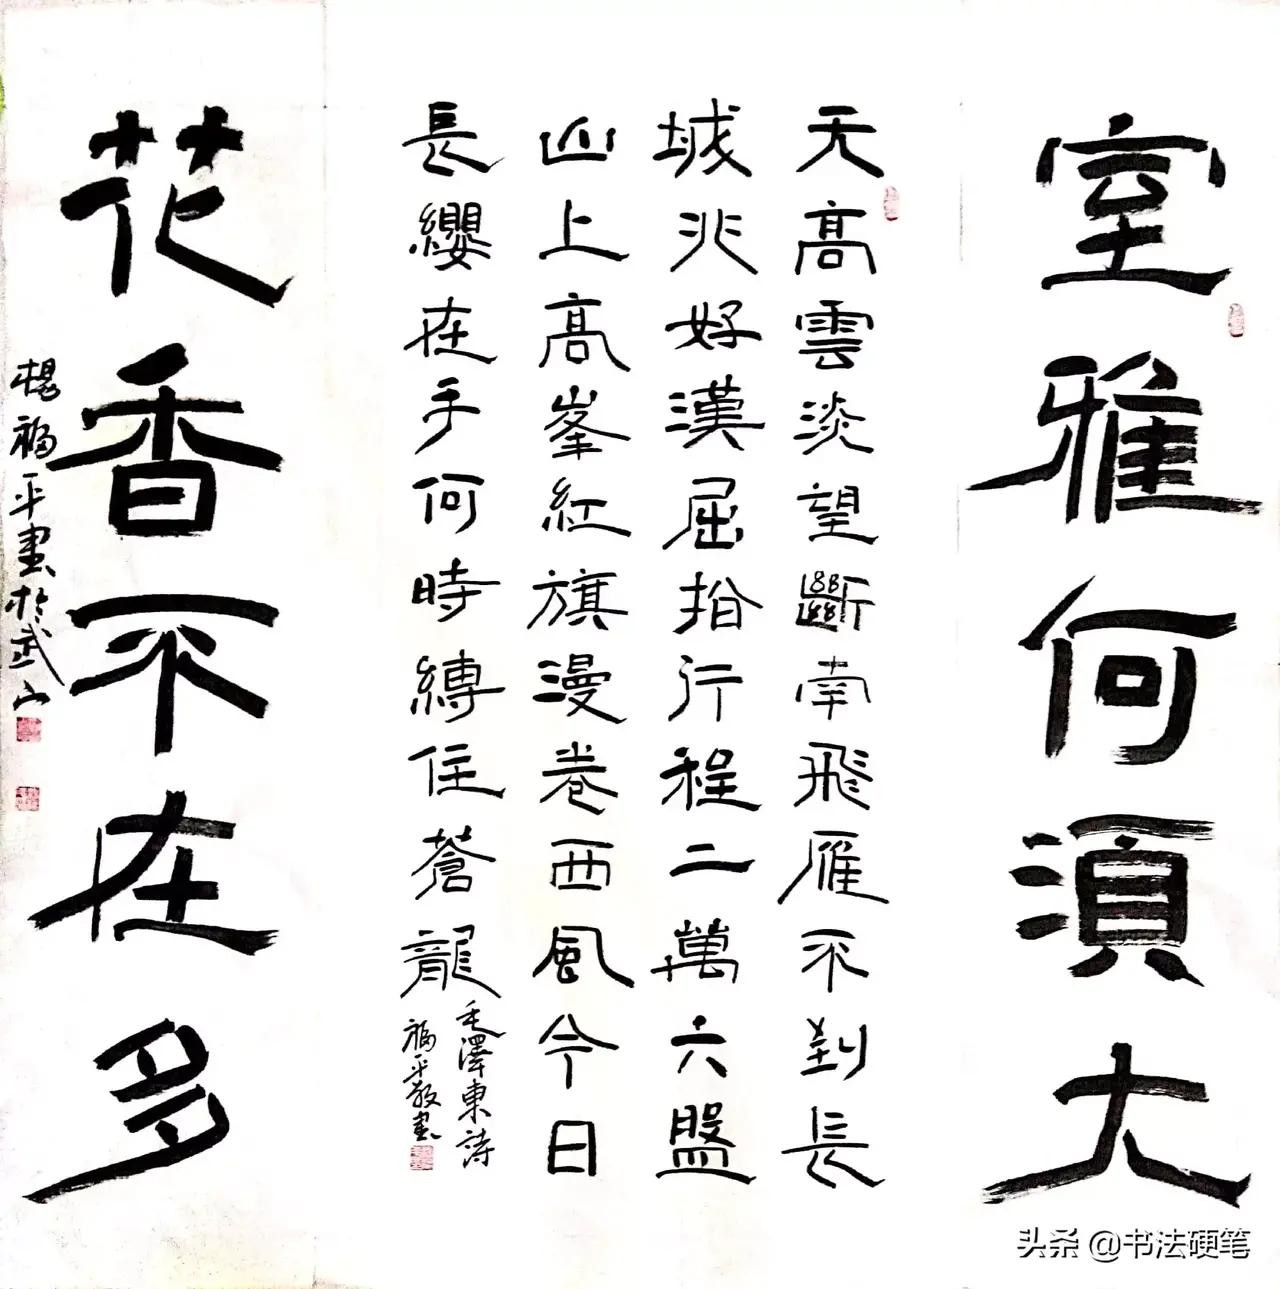 室雅何須大
天高雲淡望斷南飛雁不到長
城非好漢屈指行程二萬六盤
山上高峯紅旗漫卷西風今日
長纓在手何時縛住蒼龍
毛澤東詩
福平敬書
花香不在多
楊福平書於武山
头条 @书法硬笔